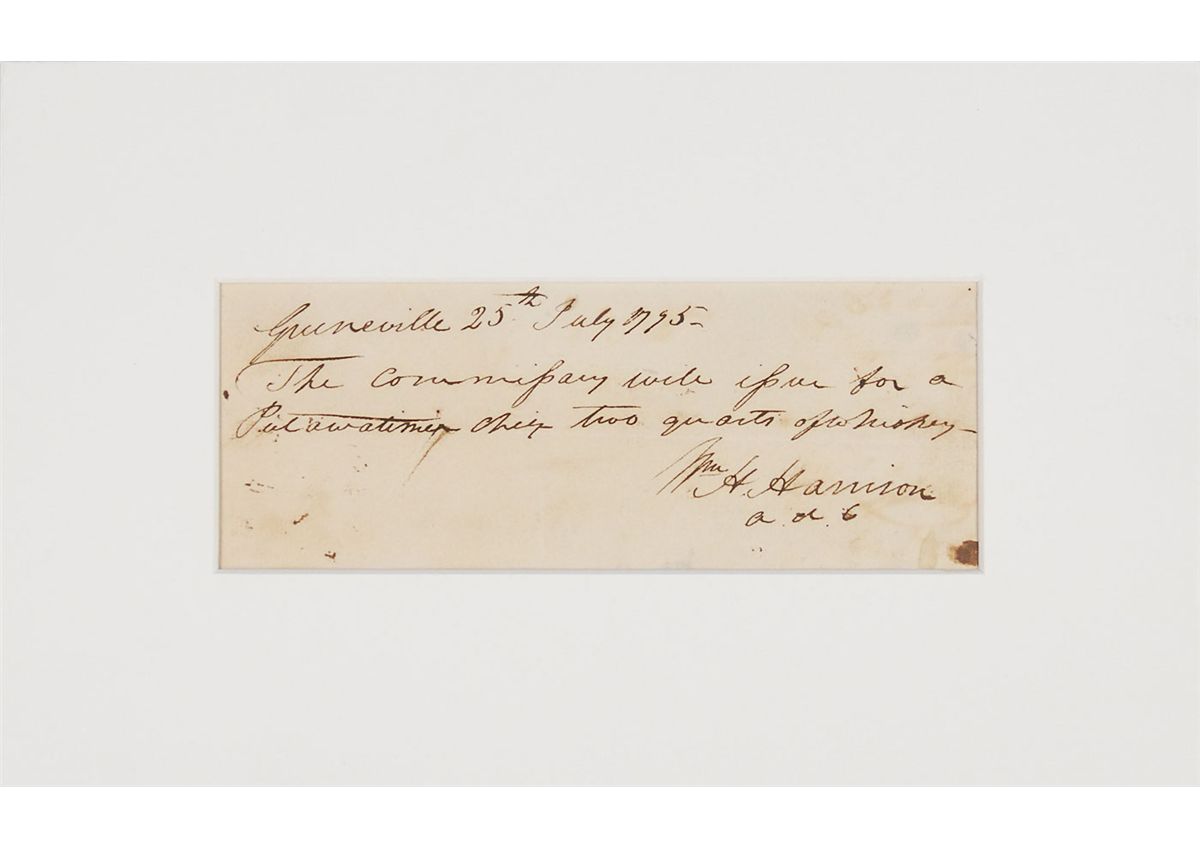 Greeneville 25th July 1795-
The commissary will issue for a
Putawatimey chief two quarts of whiskey-
Wm H. Harrison
a. d. C